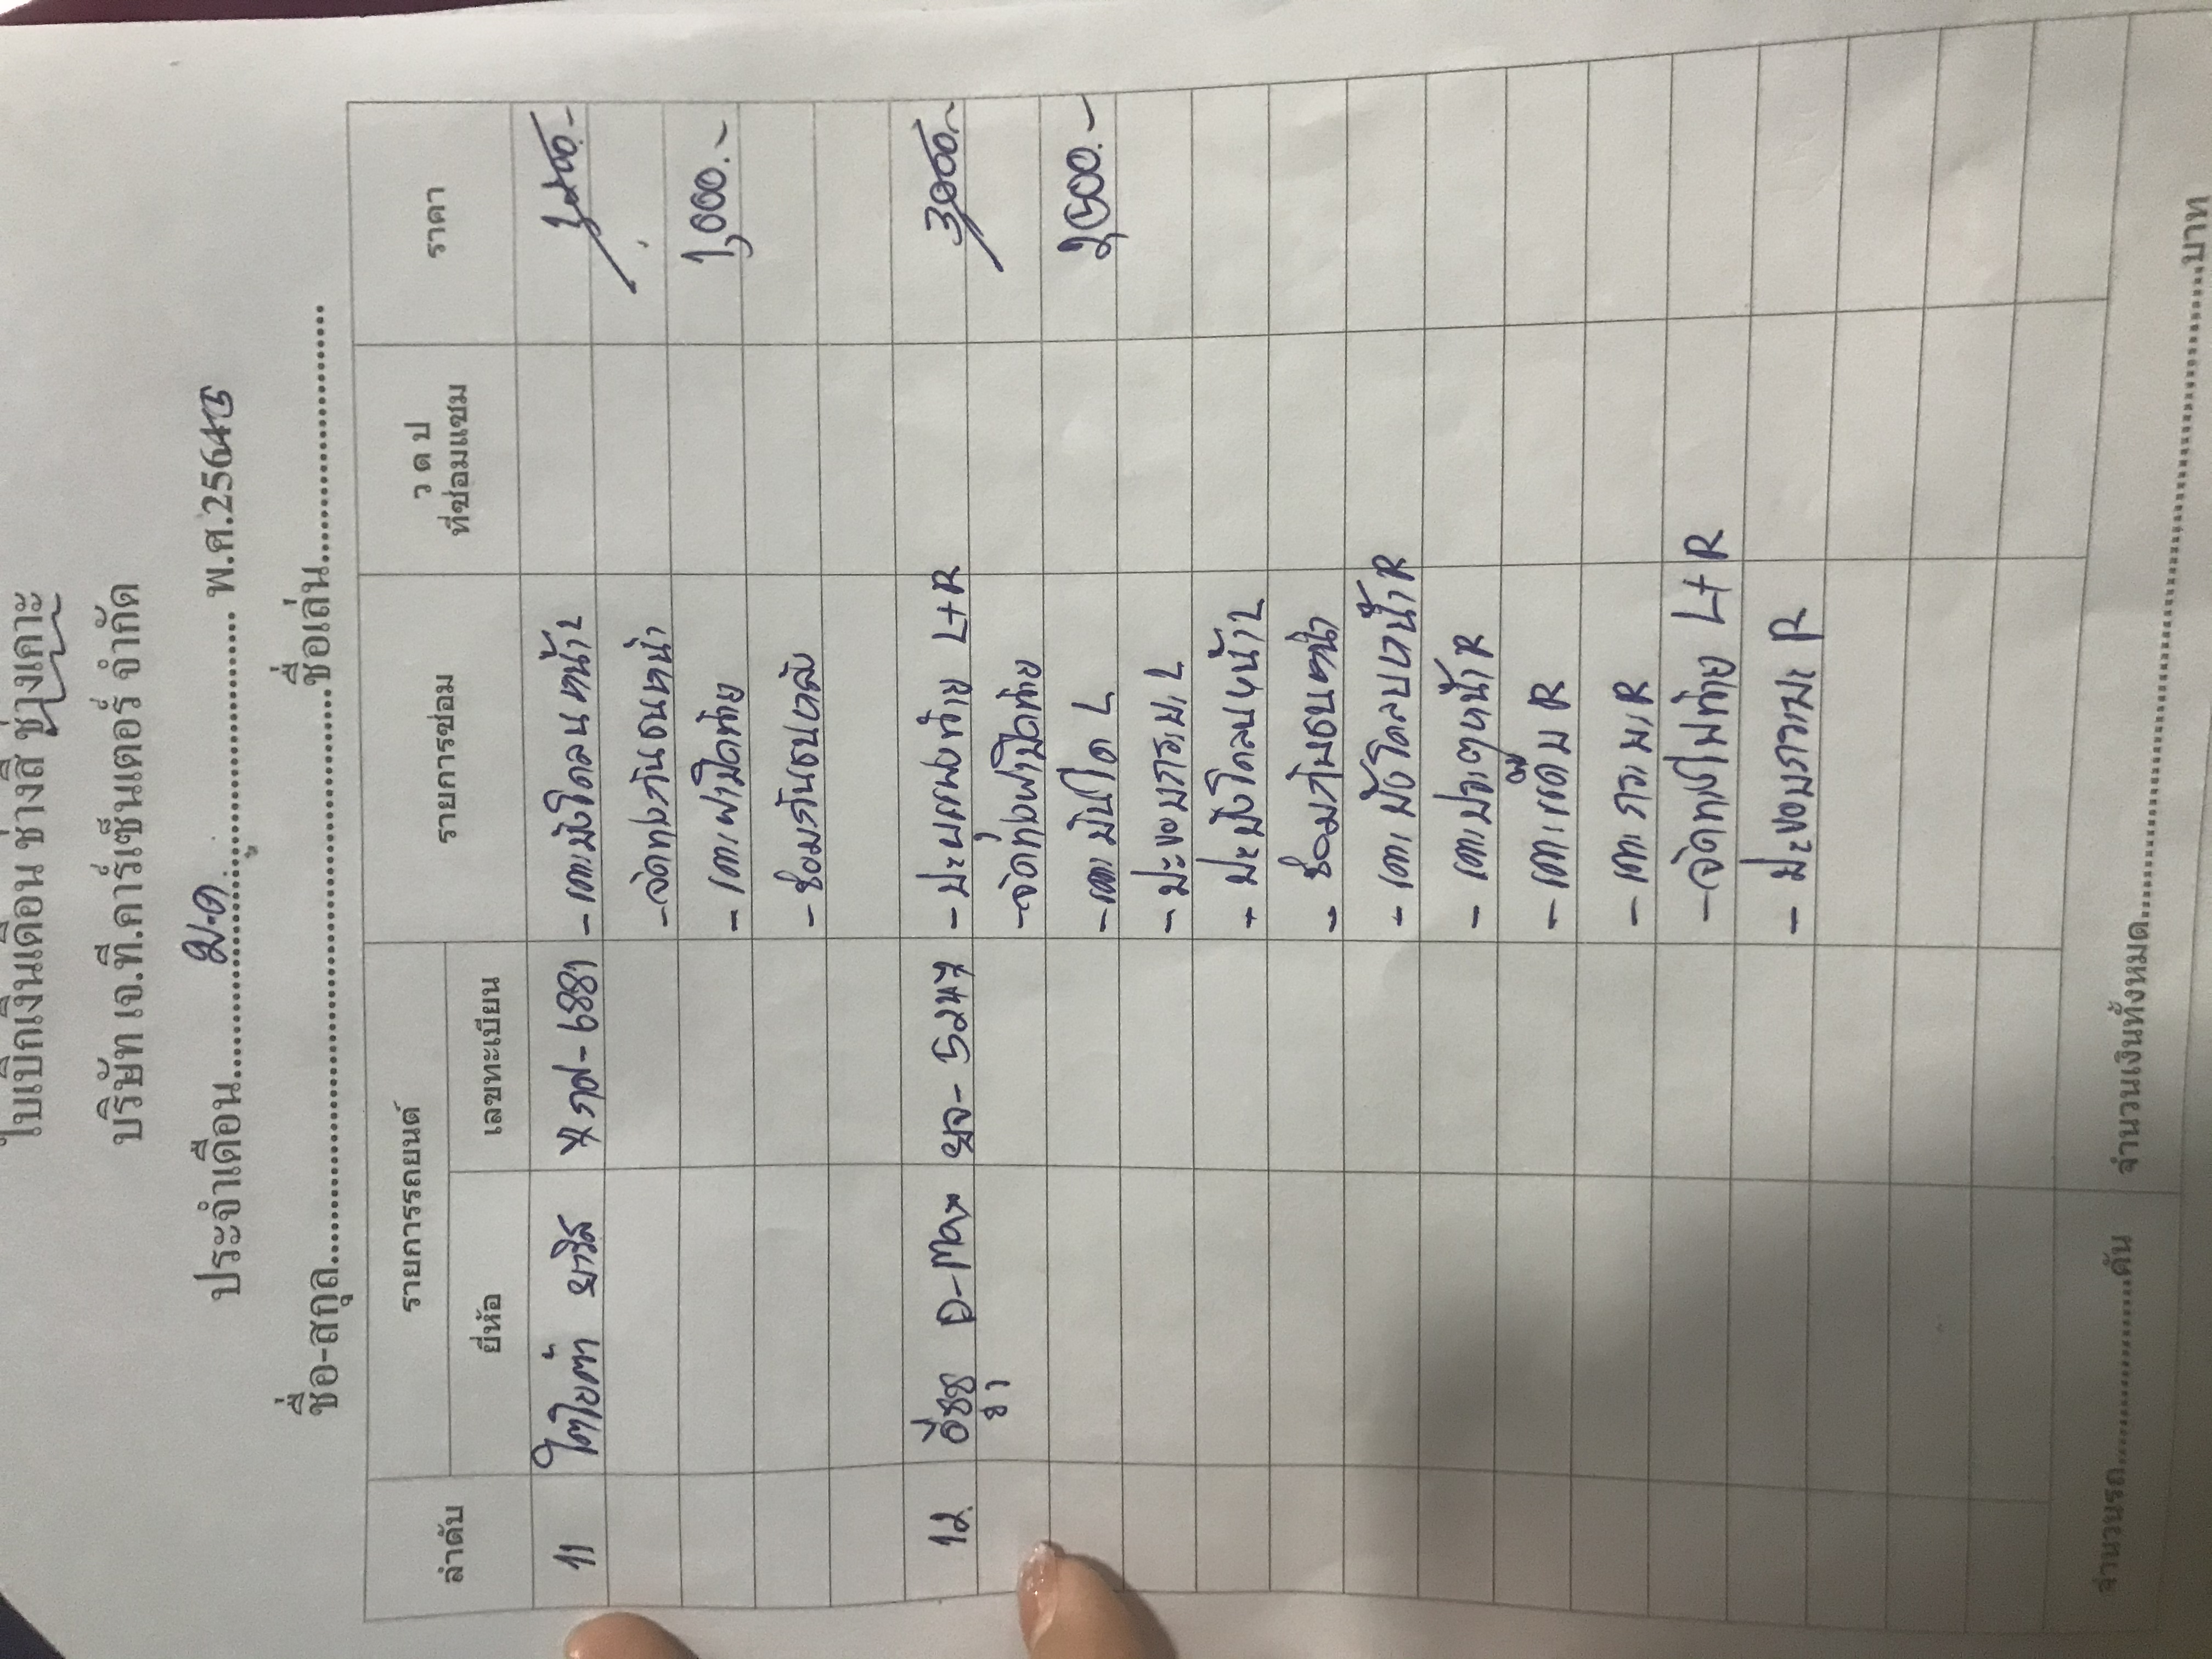 ใบเบิกเงินเดือน ช่างสี ช่างเคาะ
บริษัท เจ.ที.คาร์เซ็นเตอร์ จำกัด
ประจำเดือน ม.ค. พ.ศ.2564
ชื่อ-สกุล ชื่อเล่น
ลำดับ รายการรถยนต์ รายการซ่อม ว ด ป ที่ซ่อมแซม ราคา
ยี่ห้อ เลขทะเบียน
11 โตโยต้า ยาริส กต-6881 -เคาะบังโคลนหน้า L
-จัดทรงกันชนหน้า
-เคาะฝาปิดท้าย 1,000.-
-ซ่อมกันชนหลัง
12 อีซูซุ D-Max ผจ-5247 -ปะแผงท้าย L+R 3000.-
-จัดทรงฝาปิดท้าย
-เคาะบันได L 2500.-
-ปะขอบกระบะ L
-ปะบังโคลนหน้า L
-ซ่อมกันชนหน้า
-เคาะบังโคลนหน้า R
-เคาะประตูหน้า R
-เคาะแค็บ R
-เคาะกระบะ R
-จัดทรงไฟท้าย L+R
-ปะขอบกระบะ R
จำนวนรถ คัน จำนวนเงินทั้งหมด บาท